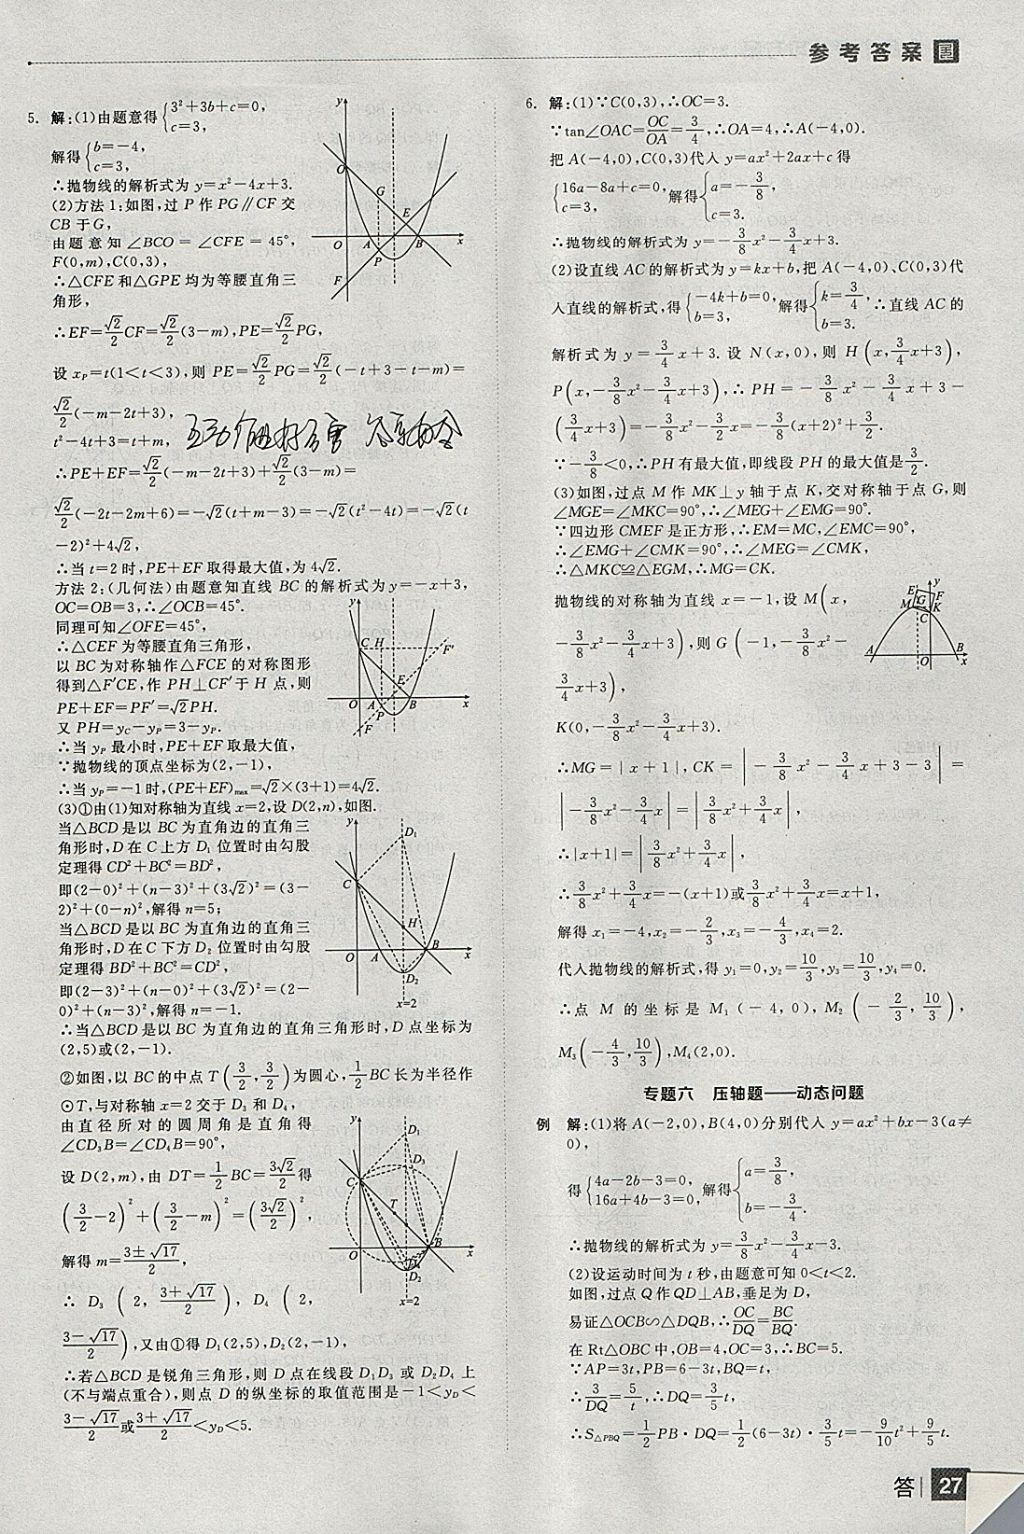 参考答案
5. 解:(1)由题意得{3²+3b+c=0, c=3,
解得{b=-4, c=3,
∴抛物线的解析式为 y=x²-4x+3.
(2)方法 1:如图,过 P 作 PG∥CF 交
CB 于 G,
由题意知∠BCO=∠CFE=45°,
F(0,m),C(0,3),
∴△CFE 和△GPE 均为等腰直角三
角形,
∴EF=√2/2 CF=√2/2(3-m),PE=√2/2 PG,
设 x_P=t(1<t<3),则 PE=√2/2 PG=√2/2(-t+3-t-m)=
√2/2(-m-2t+3),
t²-4t+3=t+m,
∴PE+EF=√2/2(-m-2t+3)+√2/2(3-m)=
√2/2(-2t-2m+6)=-√2(t+m-3)=-√2(t²-4t)=-√2(t
-2)²+4√2,
∴当 t=2 时,PE+EF 取得最大值,为 4√2.
方法 2:(几何法)由题意知直线 BC 的解析式为 y=-x+3,
OC=OB=3,∴∠OCB=45°.
同理可知∠OFE=45°,
∴△CEF 为等腰直角三角形,
以 BC 为对称轴作△FCE 的对称图形
得到△F′CE,作 PH⊥CF′于 H 点,则
PE+EF=PF′=√2PH.
又 PH=y_C-y_P=3-y_P.
∴当 y_P 最小时,PE+EF 取最大值,
∵抛物线的顶点坐标为(2,-1),
∴当 y_P=-1 时,(PE+EF)max=√2×(3+1)=4√2.
(3)①由(1)知对称轴为直线 x=2,设 D(2,n),如图.
当△BCD 是以 BC 为直角边的直角三
角形时,D 在 C 上方 D₁ 位置时由勾股
定理得 CD²+BC²=BD²,
即(2-0)²+(n-3)²+(3√2)²=(3-
2)²+(0-n)²,解得 n=5;
当△BCD 是以 BC 为直角边的直角三
角形时,D 在 C 下方 D₂ 位置时由勾股
定理得 BD²+BC²=CD²,
即(2-3)²+(n-0)²+(3√2)²=(2-
0)²+(n-3)²,解得 n=-1.
∴当△BCD 是以 BC 为直角边的直角三角形时,D 点坐标为
(2,5)或(2,-1).
②如图,以 BC 的中点 T(3/2,3/2)为圆心,1/2 BC 长为半径作
⊙T,与对称轴 x=2 交于 D₃ 和 D₄,
由直径所对的圆周角是直角得
∠CD₃B=∠CD₄B=90°,
设 D(2,m),由 DT=1/2 BC=3√2/2 得
(3/2-2)²+(3/2-m)²=(3√2/2)²,
解得 m=(3±√17)/2,
∴ D₃ (2, (3+√17)/2), D₄ (2,
(3-√17)/2),又由①得 D₁(2,5),D₂(2,-1),
∴若△BCD 是锐角三角形,则 D 点在线段 D₁D₃ 或 D₂D₄ 上
(不与端点重合),则点 D 的纵坐标的取值范围是-1<y_D<
(3-√17)/2 或 (3+√17)/2<y_D<5.
6. 解:(1)∵C(0,3),∴OC=3.
∵tan∠OAC=OC/OA=3/4,∴OA=4,∴A(-4,0).
把 A(-4,0),C(0,3)代入 y=ax²+2ax+c 得
{16a-8a+c=0, c=3, 解得{a=-3/8, c=3.
∴抛物线的解析式为 y=-3/8x²-3/4x+3.
(2)设直线 AC 的解析式为 y=kx+b,把 A(-4,0)、C(0,3)代
入直线的解析式,得{-4k+b=0, b=3, 解得{k=3/4, b=3. ∴直线 AC 的
解析式为 y=3/4x+3. 设 N(x,0),则 H(x,3/4x+3),
P(x,-3/8x²-3/4x+3),∴ PH=-3/8x²-3/4x+3-
(3/4x+3)=-3/8x²-3/2x=-3/8(x+2)²+3/2.
∵-3/8<0,∴PH 有最大值,即线段 PH 的最大值是3/2.
(3)如图,过点 M 作 MK⊥y 轴于点 K,交对称轴于点 G,则
∠MGE=∠MKC=90°,∴∠MEG+∠EMG=90°.
∵四边形 CMEF 是正方形,∴EM=MC,∠EMC=90°,
∴∠EMG+∠CMK=90°,∴∠MEG=∠CMK,
∴△MKC≌△EGM,∴MG=CK.
抛物线的对称轴为直线 x=-1,设 M(x,
-3/8x²-3/4x+3),则 G(-1,-3/8x²-
3/4x+3),
K(0,-3/8x²-3/4x+3).
∴MG=|x+1|,CK=|-3/8x²-3/4x+3-3|=
|-3/8x²-3/4x|=|3/8x²+3/4x|,
∴|x+1|=|3/8x²+3/4x|,
∴3/8x²+3/4x=-(x+1)或3/8x²+3/4x=x+1,
解得 x₁=-4,x₂=-2/3,x₃=-4/3,x₄=2.
代入抛物线的解析式,得 y₁=0,y₂=10/3,y₃=10/3,y₄=0.
∴点 M 的坐标是 M₁(-4,0),M₂(-2/3,10/3),
M₃(-4/3,10/3),M₄(2,0).
专题六 压轴题——动态问题
例 解:(1)将 A(-2,0),B(4,0)分别代入 y=ax²+bx-3(a≠
0),
得{4a-2b-3=0, 16a+4b-3=0, 解得{a=3/8, b=-3/4.
∴抛物线的解析式为 y=3/8x²-3/4x-3.
(2)设运动时间为 t 秒,由题意可知 0<t<2.
如图,过点 Q 作 QD⊥AB,垂足为 D,
易证△OCB∽△DQB,∴OC/DQ=BC/BQ.
在 Rt△OBC 中,OB=4,OC=3,∴BC=5.
∵AP=3t,PB=6-3t,BQ=t,
∴3/DQ=5/t,∴DQ=3/5t,
∴S△PBQ=1/2PB·DQ=1/2(6-3t)·3/5t=-9/10t²+9/5t.
答 27